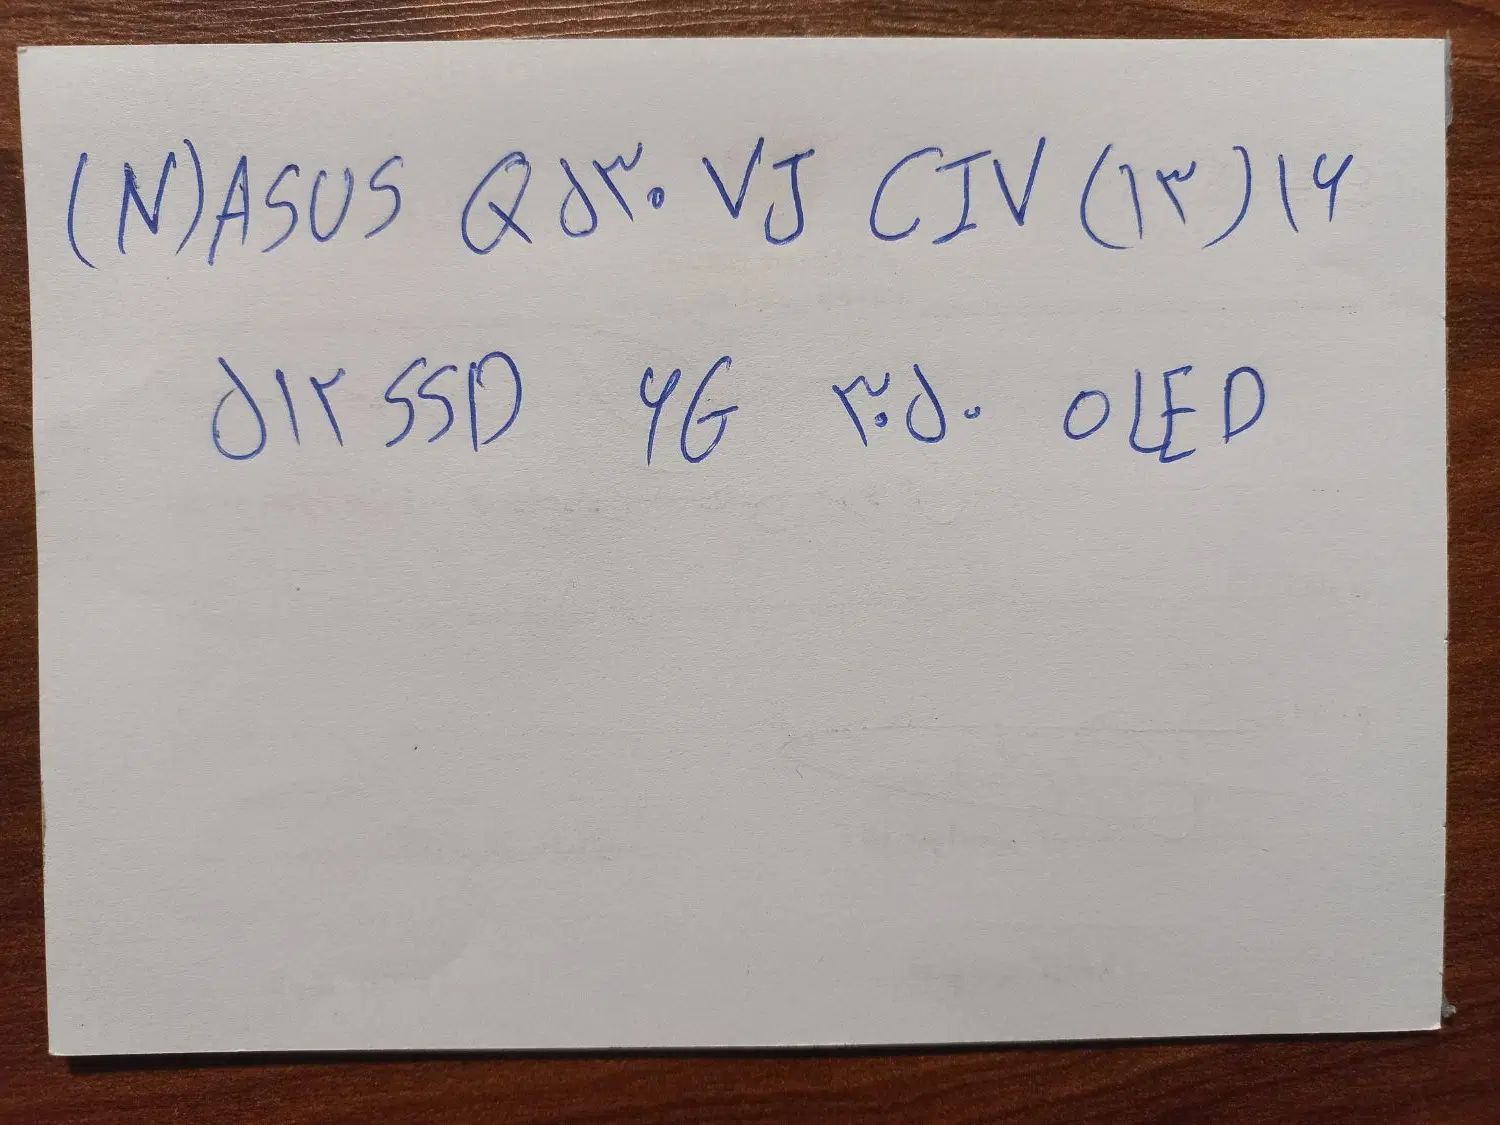 (N)ASUS Q۵۳۰ VJ CIV (۱۳)۱۶
۵۱۲ SSD ۶G ۳۰۵۰ OLED